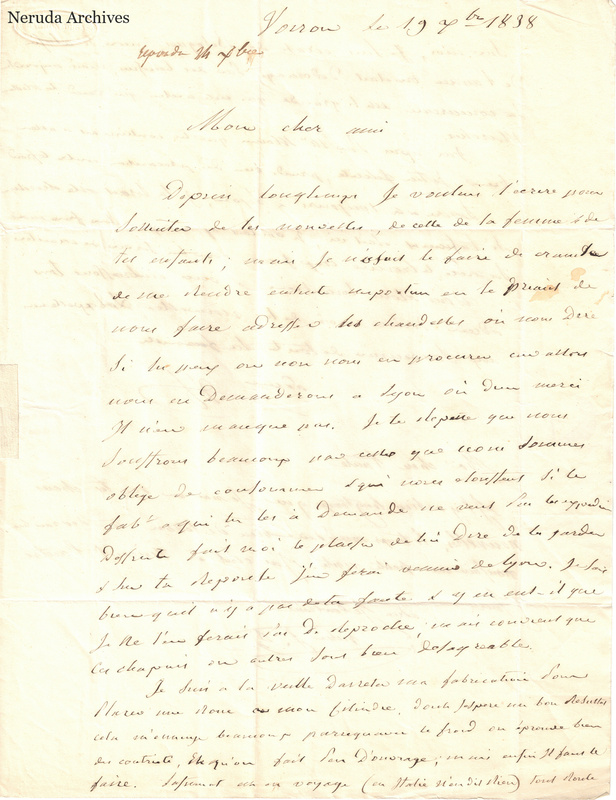 Neruda Archives
Voiron le 19 xbre 1838
repondu 24 xbre
Mon cher ami
Depuis longtemps Je voulais t'écrire pour
solliciter de tes nouvelles, de celle de ta femme & de
tes enfants; mais Je n'osais le faire de crainte
de me rendre importun en te priant de
nous faire adresser les chandelles ou nous Dire
Si tu peux ou non nous en procurer
nous en Demanderons a Lyon où dieu merci
Il n'en manque pas. Je te répète que nous
Souffrons beaucoup par celles que nous sommes
obligé de consommer & qui nous étouffent Si le
fabt a qui tu les a Demandé ne veut pas les expedier
De suite fait moi le plaisir de lui Dire de les garder
& Sur ta reponse J'en ferai venir de Lyon. Je Sais
bien qu'il n'y a pas de ta faute & y en eut-il que
Je Ne t'en ferais pas De reproche, mais conviens que
ces chapuis ou autres Sont bien désagréable.
Je Suis a la veille D'arreter ma fabrication pour
Placer une Roue a mon Cilindre, dont J'espere un bon Resultat
cela beaucoup parceque le froid on éprouve bien
des contrariétés, Et qu'on fait peu D'ouvrage; mais enfin Il faut le
faire. en voyage (en Italie n'en dit rien) tout Roule